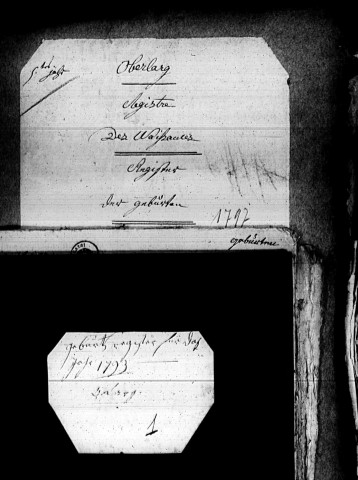 5tes Jahr
Oberlarg
Registre
Des Naissances
Register
der gebürten
1797
gebürten
geburts register für das
Jahr 1793
Oberlarg
1